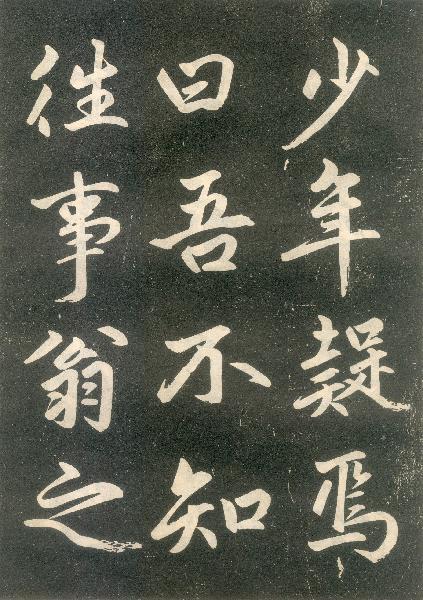 少年疑焉
曰吾不知
往事翁之